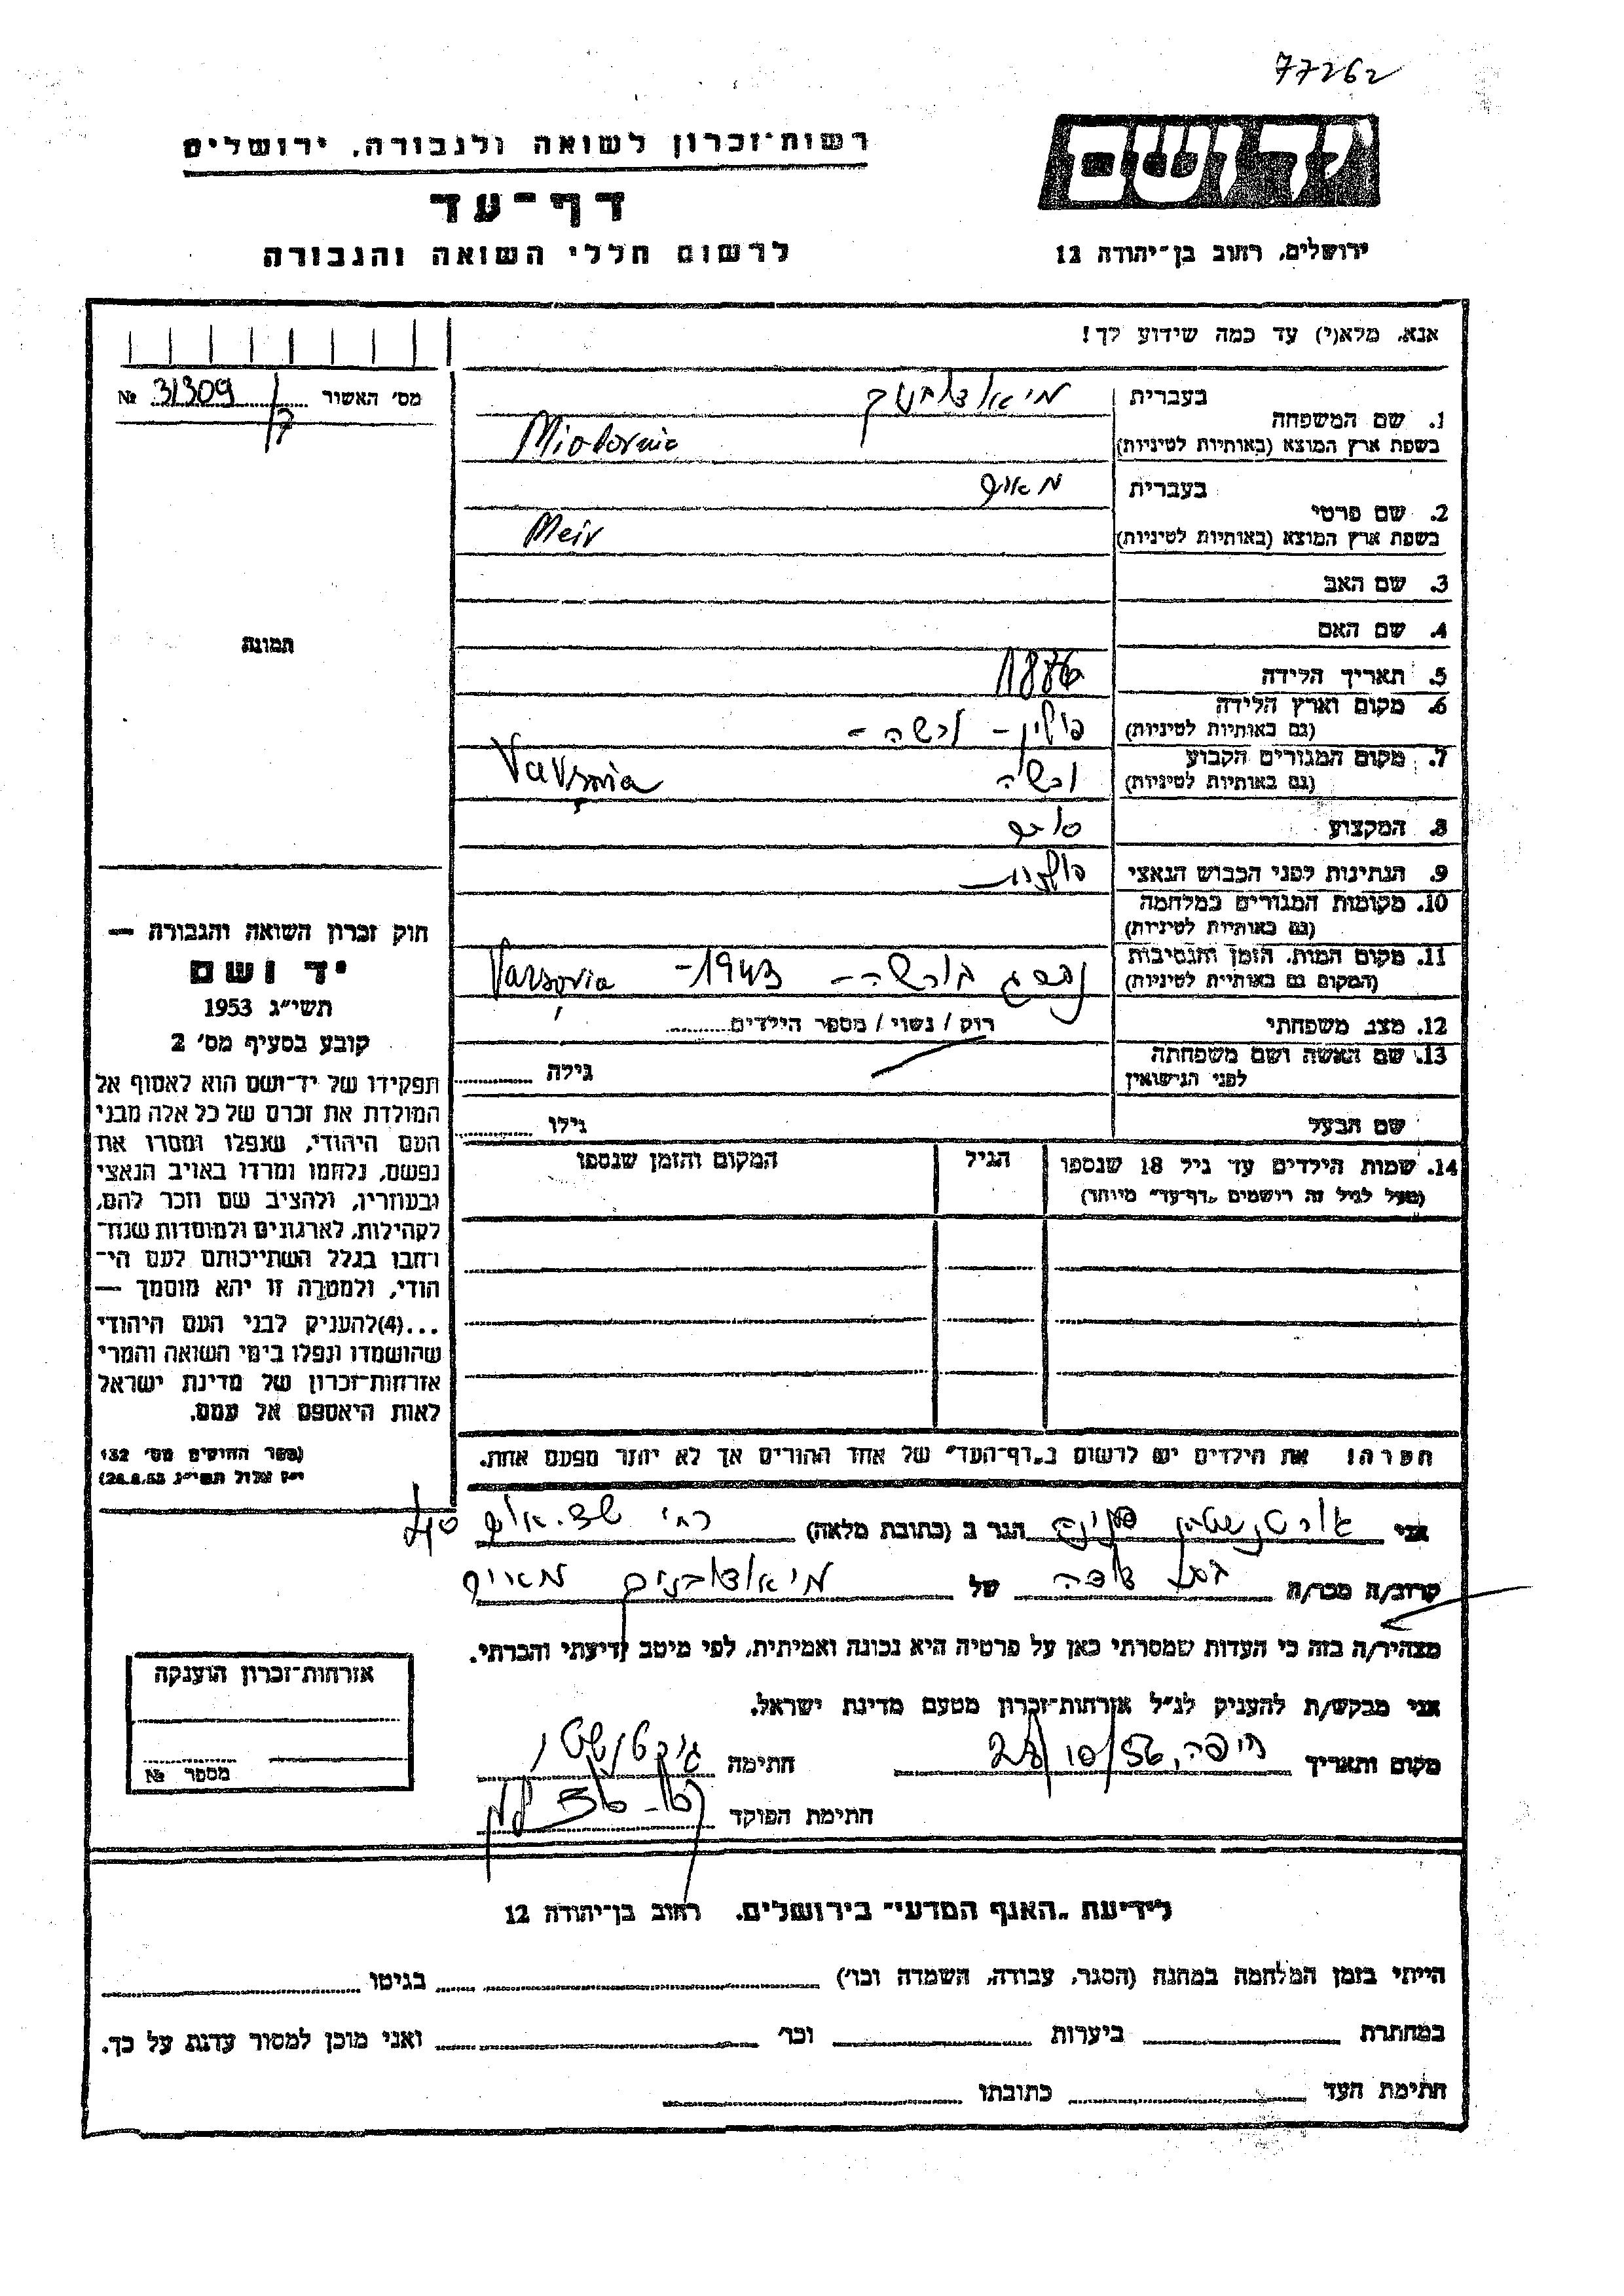 77262
יד ושם
רשות־זכרון לשואה ולגבורה, ירושלים
דף־עד
לרשום חללי השואה והגבורה
ירושלים, רחוב בן־יהודה 12
אנא, מלא(י) עד כמה שידוע לך!
מס' האשור № 31309
1. שם המשפחה
בעברית
בשפת ארץ המוצא (באותיות לטיניות)
2. שם פרטי
בעברית
בשפת ארץ המוצא (באותיות לטיניות) Meir
3. שם האב
4. שם האם
5. תאריך הלידה 1876
6. מקום וארץ הלידה פולין - ורשה -
(גם באותיות לטיניות)
7. מקום המגורים הקבוע ורשה
(גם באותיות לטיניות)
8. המקצוע
9. הנתינות לפני הכבוש הנאצי
10. מקומות המגורים במלחמה
(גם באותיות לטיניות)
11. מקום המות, הזמן והנסיבות בורשה - 1943 -
(המקום גם באותיות לטיניות)
12. מצב משפחתי רוק / נשוי / מספר הילדים
13. שם האשה ושם משפחתה
לפני הנישואין גילה
שם הבעל גילו
14. שמות הילדים עד גיל 18 שנספו
(מעל לגיל זה רושמים „דף־עד" מיוחד)
הגיל
המקום והזמן שנספו
תמונה
חוק זכרון השואה והגבורה —
יד ושם
תשי"ג 1953
קובע בסעיף מס' 2
תפקידו של יד־ושם הוא לאסוף אל
המולדת את זכרם של כל אלה מבני
העם היהודי, שנפלו ומסרו את
נפשם, נלחמו ומרדו באויב הנאצי
ובעוזריו, ולהציב שם וזכר להם,
לקהילות, לארגונים ולמוסדות שנח־
רבו בגלל השתייכותם לעם הי־
הודי, ולמטרה זו יהא מוסמך —
...(4)להעניק לבני העם היהודי
שהושמדו ונפלו בימי השואה והמרי
אזרחות־זכרון של מדינת ישראל
לאות היאספם אל עמם.
(ספר החוקים מס' 132
י"ז אלול תשי"ג 28.8.53)
הערה! את הילדים יש לרשום ב„דף־העד" של אחד ההורים אך לא יותר מפעם אחת.
אני הגר ב (כתובת מלאה)
קרוב/ה מכר/ה של
מצהיר/ה בזה כי העדות שמסרתי כאן על פרטיה היא נכונה ואמיתית, לפי מיטב ידיעתי והכרתי.
אני מבקש/ת להעניק לנ"ל אזרחות־זכרון מטעם מדינת ישראל.
מקום ותאריך חיפה, 28/10/56 חתימה
חתימת הפוקד
אזרחות־זכרון הוענקה
מספר №
לידיעת „האגף המדעי" בירושלים, רחוב בן־יהודה 12
הייתי בזמן המלחמה במחנה (הסגר, עבודה, השמדה וכו') בגיטו
במחתרת ביערות וכו' ואני מוכן למסור עדות על כך.
חתימת העד כתובתו